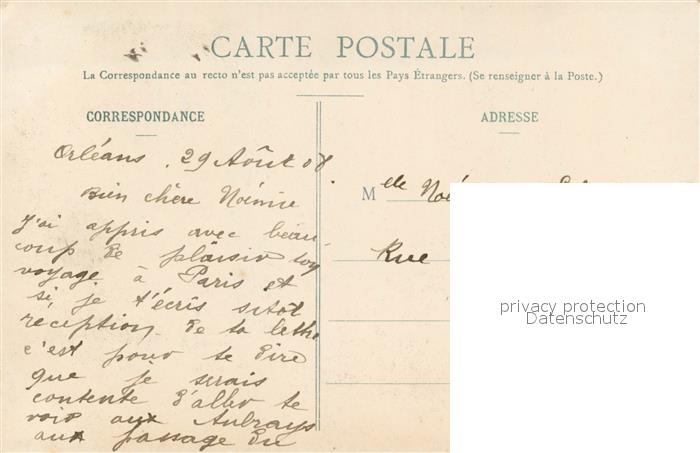 CARTE POSTALE
La Correspondance au recto n'est pas acceptée par tous les Pays Étrangers. (Se renseigner à la Poste.)
CORRESPONDANCE
Orléans, 29 Août 08
Bien chère Noémie
J'ai appris avec beau-
coup de plaisir ton
voyage à Paris et
si je t'écris sitôt
réception de ta lettre
c'est pour te dire
que je serais
contente d'aller te
voir aux Aubrays
aux passage du
ADRESSE
Melle
Rue
privacy protection
Datenschutz